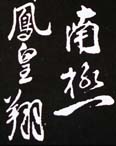 南極
鳳皇翔